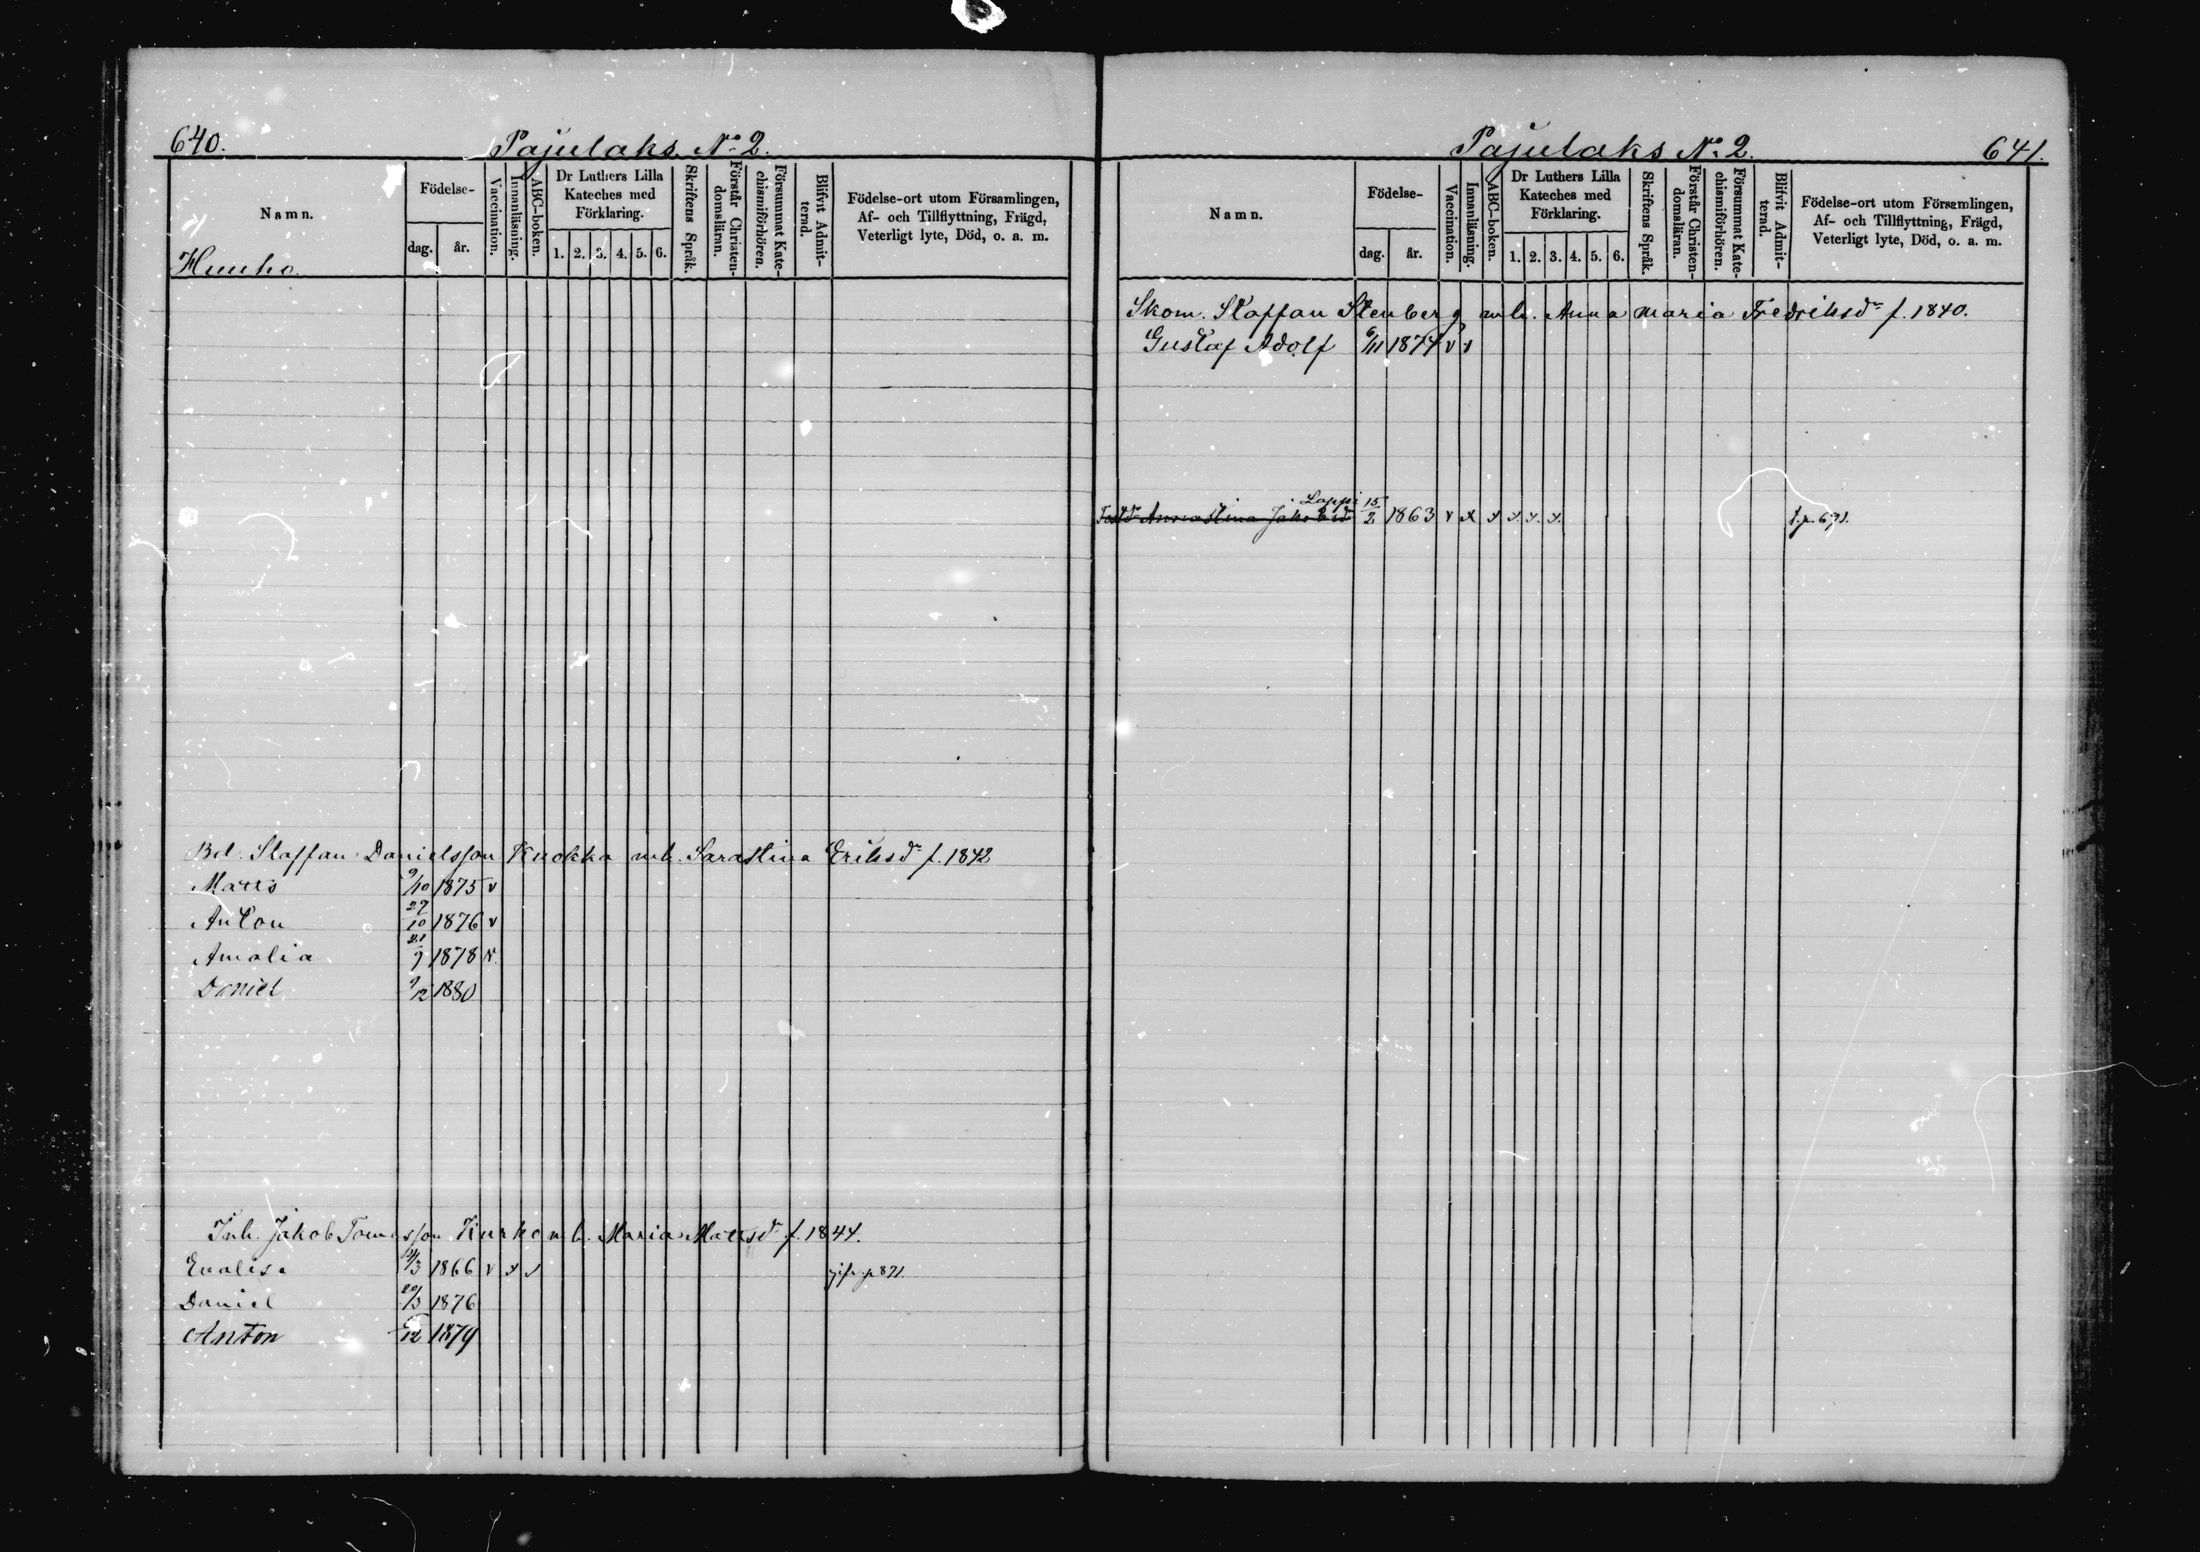 640.
Pajulaks. No 2.
Namn.
Födelse-
dag.
år.
Vaccination.
Innanläsning.
ABC-boken.
Dr Luthers Lilla Kateches med Förklaring.
1. 2. 3. 4. 5. 6.
Skriftens Språk.
Förstår Christendomsläran.
Försummat Katechismiförhören.
Blifvit Admitterad.
Födelse-ort utom Församlingen,
Af- och Tillflyttning, Frägd,
Veterligt lyte, Död, o. a. m.
Huuho.
Bd. Staffan Danielsson Kuokka m.h. Sarastina Eriksdr f. 1842
Matts 9/10 1875 v
Anton 27/10 1876 v
Amalia 21/9 1878 v.
Daniel 9/12 1880
Inh. Jakob Tomasson Kurko m.h. Maria Mattsdr f. 1844.
Evalisa 1866 v v v
Daniel 20/3 1876
Anton 1879
Pajulaks No 2.
641.
Namn.
Födelse-
dag.
år.
Vaccination.
Innanläsning.
ABC-boken.
Dr Luthers Lilla Kateches med Förklaring.
1. 2. 3. 4. 5. 6.
Skriftens Språk.
Förstår Christendomsläran.
Försummat Katechismiförhören.
Blifvit Admitterad.
Födelse-ort utom Församlingen,
Af- och Tillflyttning, Frägd,
Veterligt lyte, Död, o. a. m.
Skom. Staffan Stenberg m.h. Anna Maria Fredriksdr f. 1840.
Gustaf Adolf 6/11 1874 v v
Lappi
Annastina Jakobsdr 15/2 1863 v x v v v. v.